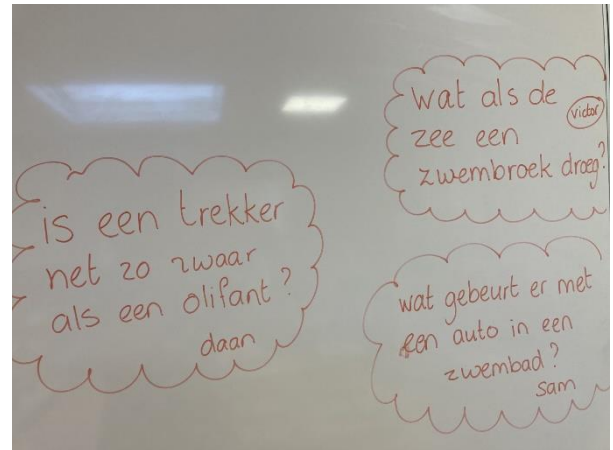 is een trekker
net zo zwaar
als een olifant?
daan
wat als de
victor
zee een
zwembroek droeg?
wat gebeurt er met
een auto in een
zwembad?
sam